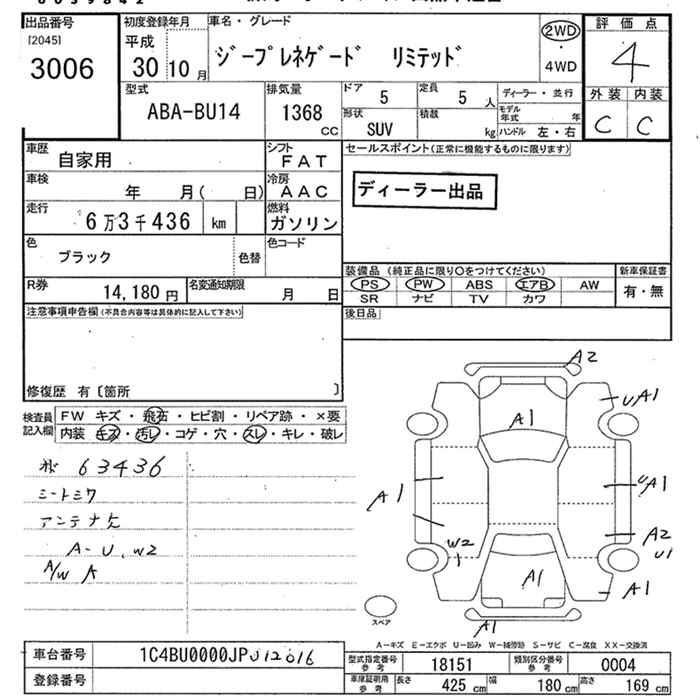 出品番号
[2045]
3006
初度登録年月
平成
30 10 月
車名・グレード
ジープレネゲード リミテッド
2WD
・
4WD
評価点
4
外装 内装
C C
型式
ABA-BU14
排気量
1368
CC
ドア 5
定員 5 人
形状
SUV
積載
kg
ディーラー・並行
モデル年式 年
ハンドル 左・右
車歴
自家用
シフト
FAT
車検
年 月( 日)
冷房
AAC
走行
6万3千436 km
燃料
ガソリン
色
ブラック
色替
色コード
R券
14,180 円
名変通知期限
月 日
セールスポイント(正常に機能するものに限ります)
ディーラー出品
装備品 (純正品に限り○をつけてください)
新車保証書
PS PW ABS エアB AW
SR ナビ TV カワ
有・無
後日品
注意事項申告欄(不具合内容等は具体的に記入して下さい)
修復歴 有〔箇所 〕
検査員記入欄
FW キズ・飛石・ヒビ割・リペア跡・×要
内装 キズ・汚レ・コゲ・穴・スレ・キレ・破レ
63436
シートミワ
アンテナ欠
A-U, W2
A/W A
A2
UA1
A1
A1
UA1
A2
U1
W2
A1
A1
A1
スペア
A-キズ E-エクボ U-凹み W-補修跡 S-サビ C-腐食 XX-交換済
車台番号
1C4BU0000JP012016
登録番号
型式指定番号
参考
18151
類別区分番号
参考
0004
車庫証明用
参考
長さ 425 cm
幅 180 cm
高さ 169 cm